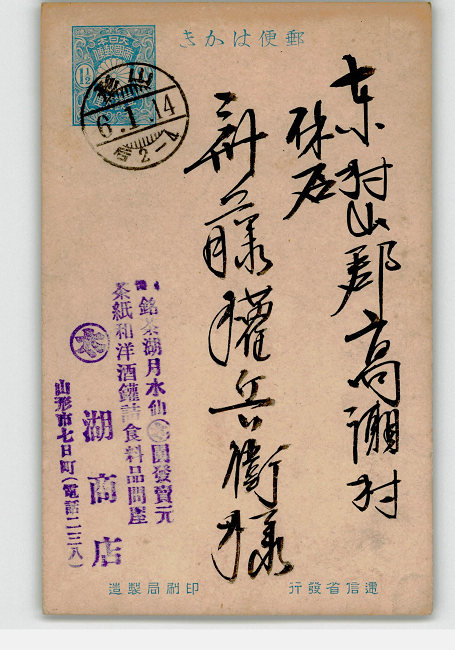 郵便はかき
大日本
帝國郵便
1½
山
6.1.14
2-4
東村山郡高擶村
藤權兵衛様
銘茶湖月水仙 開發賣元
茶紙和洋酒鑵詰食料品問屋
湖商店
山形市七日町(電話二三八)
遞信省發行
印刷局製造